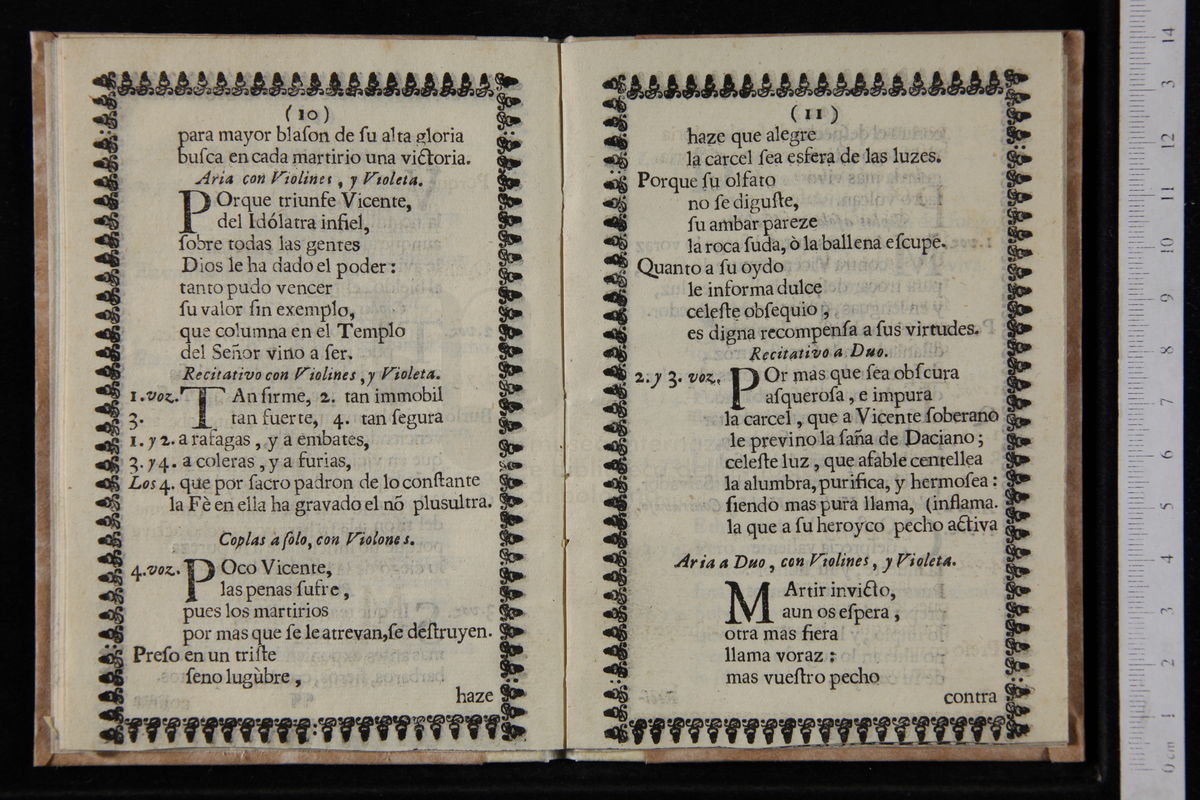 (10)
para mayor blaſon de ſu alta gloria
buſca en cada martirio una victoria.
Aria con Violines, y Violeta.
POrque triunfe Vicente,
del Idólatra infiel,
ſobre todas las gentes
Dios le ha dado el poder:
tanto pudo vencer
ſu valor ſin exemplo,
que columna en el Templo
del Señor vino a ſer.
Recitativo con Violines, y Violeta.
1. voz. TAn firme, 2. tan immobil
3. tan fuerte, 4. tan ſegura
1. y 2. a rafagas, y a embates,
3. y 4. a coleras, y a furias,
Los 4. que por ſacro padron de lo conſtante
la Fè en ella ha gravado el nõ plusultra.
Coplas a ſolo, con Violones.
4. voz. POco Vicente,
las penas ſufre,
pues los martirios
por mas que ſe le atrevan, ſe deſtruyen.
Preſo en un triſte
ſeno lugùbre,
haze
(11)
haze que alegre
la carcel ſea esfera de las luzes.
Porque ſu olfato
no ſe diguſte,
ſu ambar pareze
la roca ſuda, ò la ballena eſcupe.
Quanto a ſu oydo
le informa dulce
celeſte obſequio,
es digna recompenſa a ſus virtudes.
Recitativo a Duo.
2. y 3. voz. POr mas que ſea obſcura
aſqueroſa, e impura
la carcel, que a Vicente ſoberano
le previno la ſaña de Daciano;
celeſte luz, que afable centellea
la alumbra, purifica, y hermoſea:
ſiendo mas pura llama, (inflama.
la que a ſu heroyco pecho activa
Aria a Duo, con Violines, y Violeta.
MArtir invicto,
aun os eſpera,
otra mas fiera
llama voraz:
mas vueſtro pecho
contra
0 cm 1 2 3 4 5 6 7 8 9 10 11 12 13 14